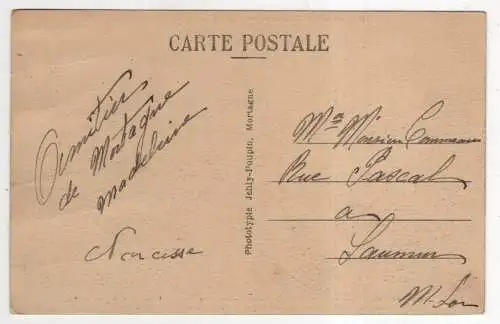 CARTE POSTALE
Amitiés
de Mortagne
Madeleine
Narcisse
Phototypie Jehly-Poupin, Mortagne
Mme Monsieur
Rue Pascal
a
Saumur
M-Loi